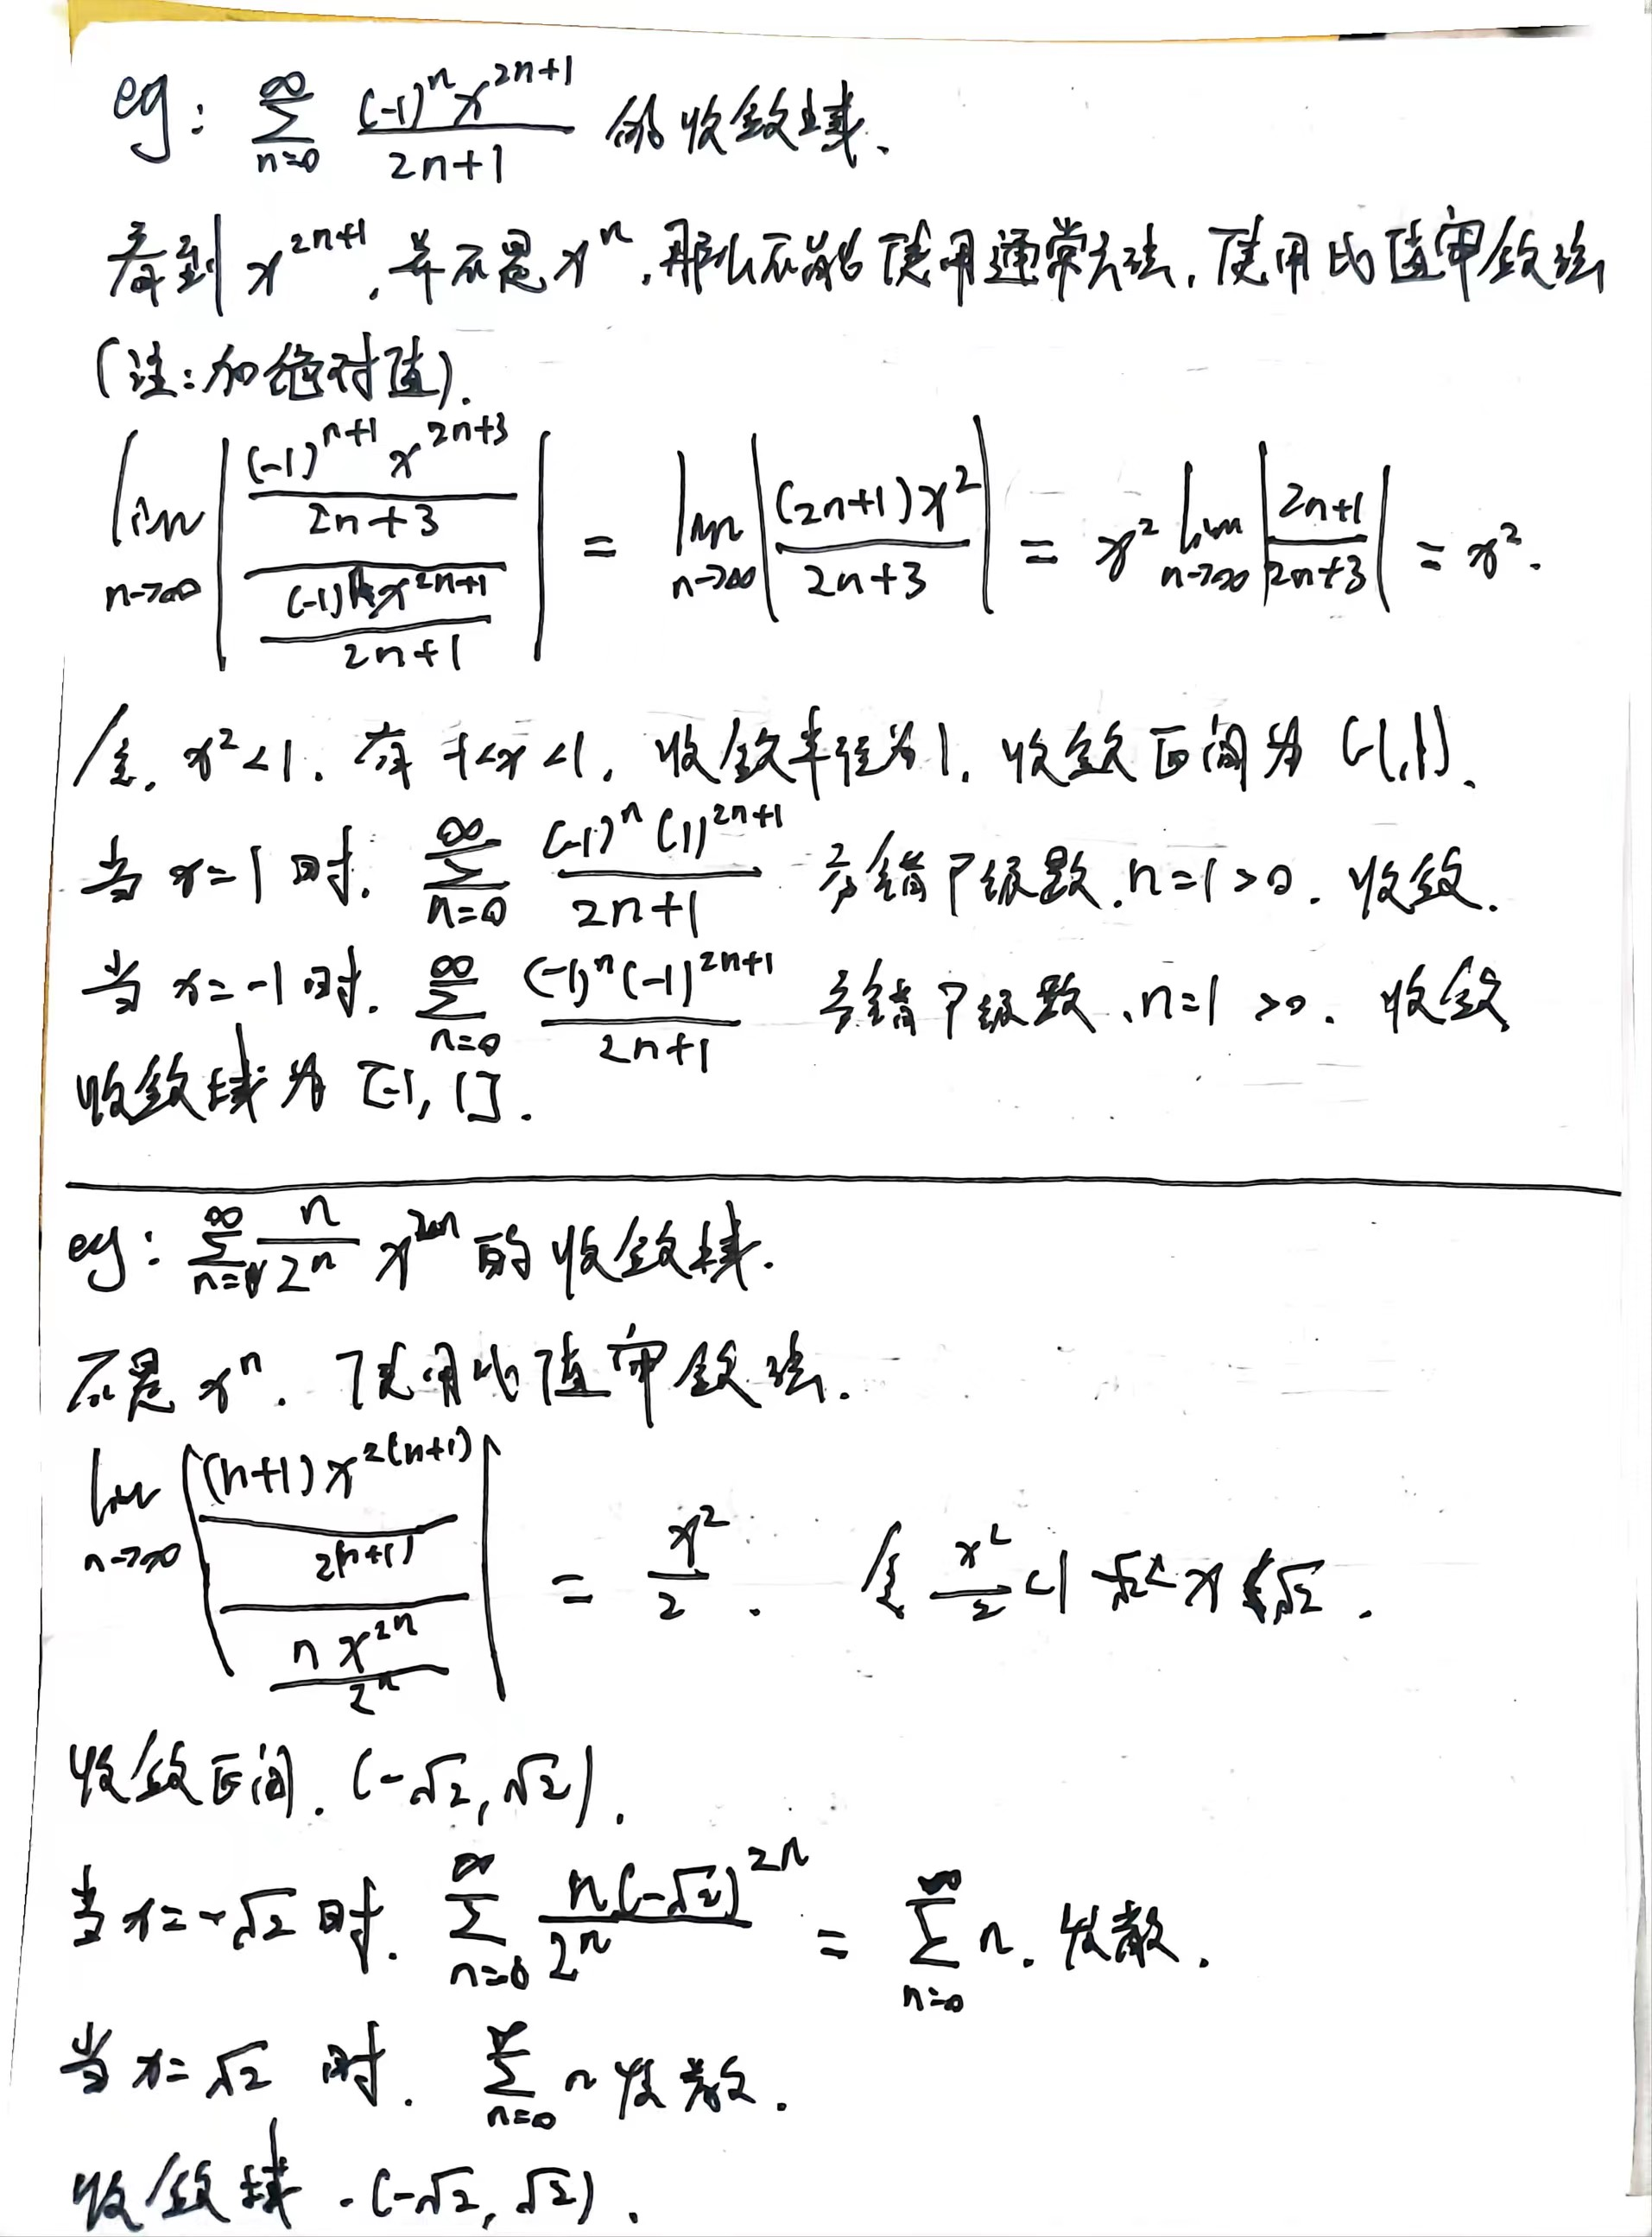 eg: ∑_{n=0}^{∞} \frac{(-1)^n x^{2n+1}}{2n+1} 的收敛域.
看到 x^{2n+1}, 并不是 x^n, 那么不能使用通常方法, 使用比值审敛法
(注:加绝对值).
lim_{n→∞} |\frac{\frac{(-1)^{n+1} x^{2n+3}}{2n+3}}{\frac{(-1)^n x^{2n+1}}{2n+1}}| = lim_{n→∞} |\frac{(2n+1)x^2}{2n+3}| = x^2 lim_{n→∞} |\frac{2n+1}{2n+3}| = x^2.
令. x^2<1. 有 -1<x<1, 收敛半径为1, 收敛区间为 (-1,1).
当 x=1 时. ∑_{n=0}^{∞} \frac{(-1)^n (1)^{2n+1}}{2n+1} 交错P级数. n=1>0. 收敛.
当 x=-1 时. ∑_{n=0}^{∞} \frac{(-1)^n (-1)^{2n+1}}{2n+1} 交错P级数, n=1 >0. 收敛
收敛域为 [-1, 1].
eg: ∑_{n=0}^{∞} \frac{n}{2^n} x^{2n} 的收敛域.
不是 x^n. 使用比值审敛法.
lim_{n→∞} |\frac{\frac{(n+1) x^{2(n+1)}}{2^{(n+1)}}}{\frac{n x^{2n}}{2^n}}| = \frac{x^2}{2}. 令 \frac{x^2}{2}<1 -√2<x<√2.
收敛区间. (-√2, √2).
当 x=-√2 时. ∑_{n=0}^{∞} \frac{n(-√2)^{2n}}{2^n} = ∑_{n=0}^{∞} n. 发散.
当 x=√2 时. ∑_{n=0}^{∞} n 发散.
收敛域. (-√2, √2).